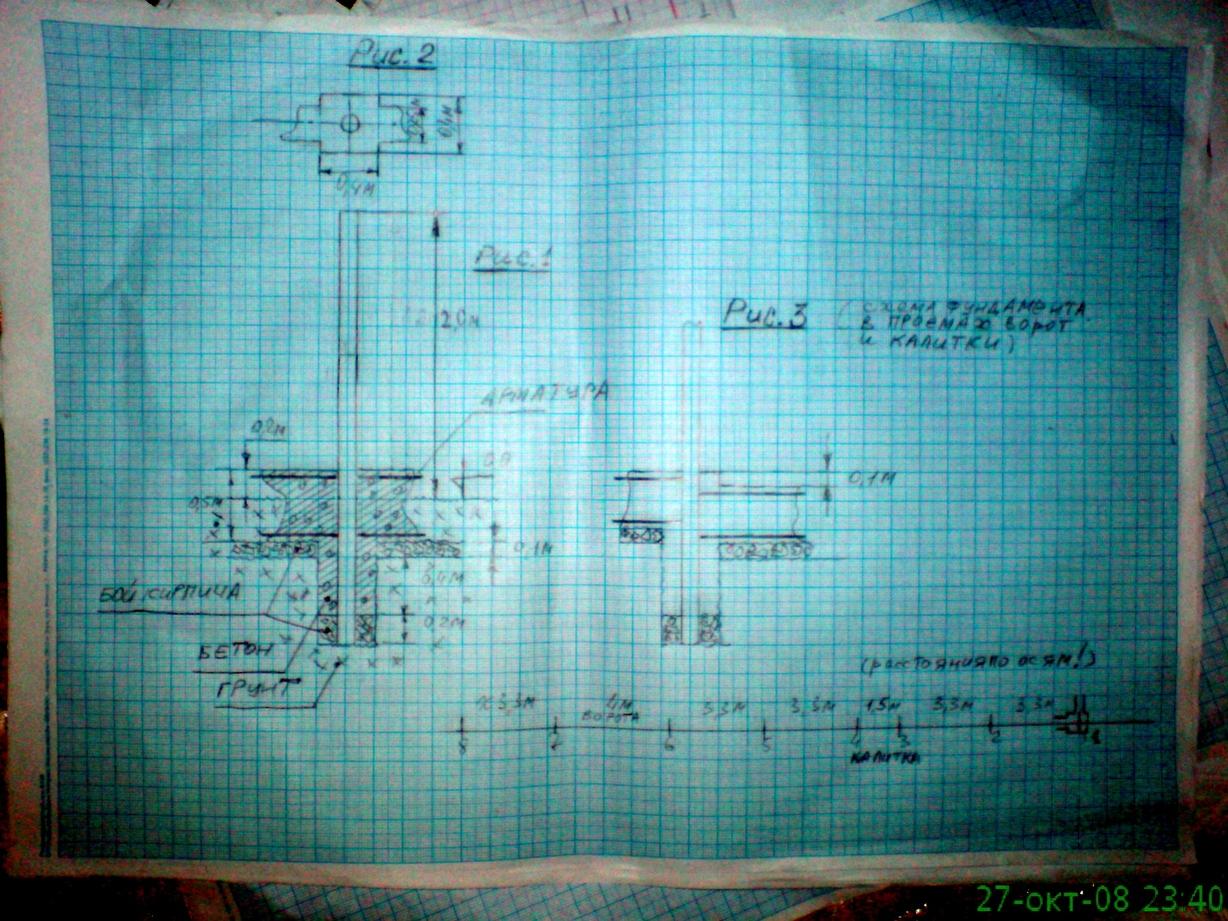 Рис. 2
0,4м
0,4м
Рис.1
2,0м
Рис.3
(СХЕМА ФУНДАМЕНТА
В ПРОЕМАХ ВОРОТ
И КАЛИТКИ)
АРМАТУРА
0,2м
0,5м
0,1м
0,1м
0,4м
0,2м
БОЙ КИРПИЧА
БЕТОН
ГРУНТ
(расстояния по осям!)
3,3м
4м
3,3м
3,3м
1,5м
3,3м
3,3м
ВОРОТА
8
7
6
5
4
3
2
1
КАЛИТКА
27-окт-08 23:40